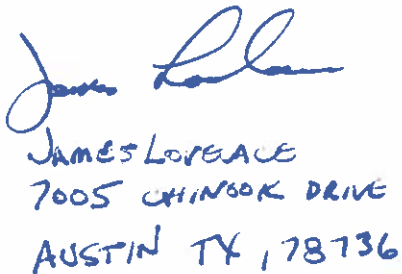 James Lovelace
JAMES LOVELACE
7005 CHINOOK DRIVE
AUSTIN TX, 78736